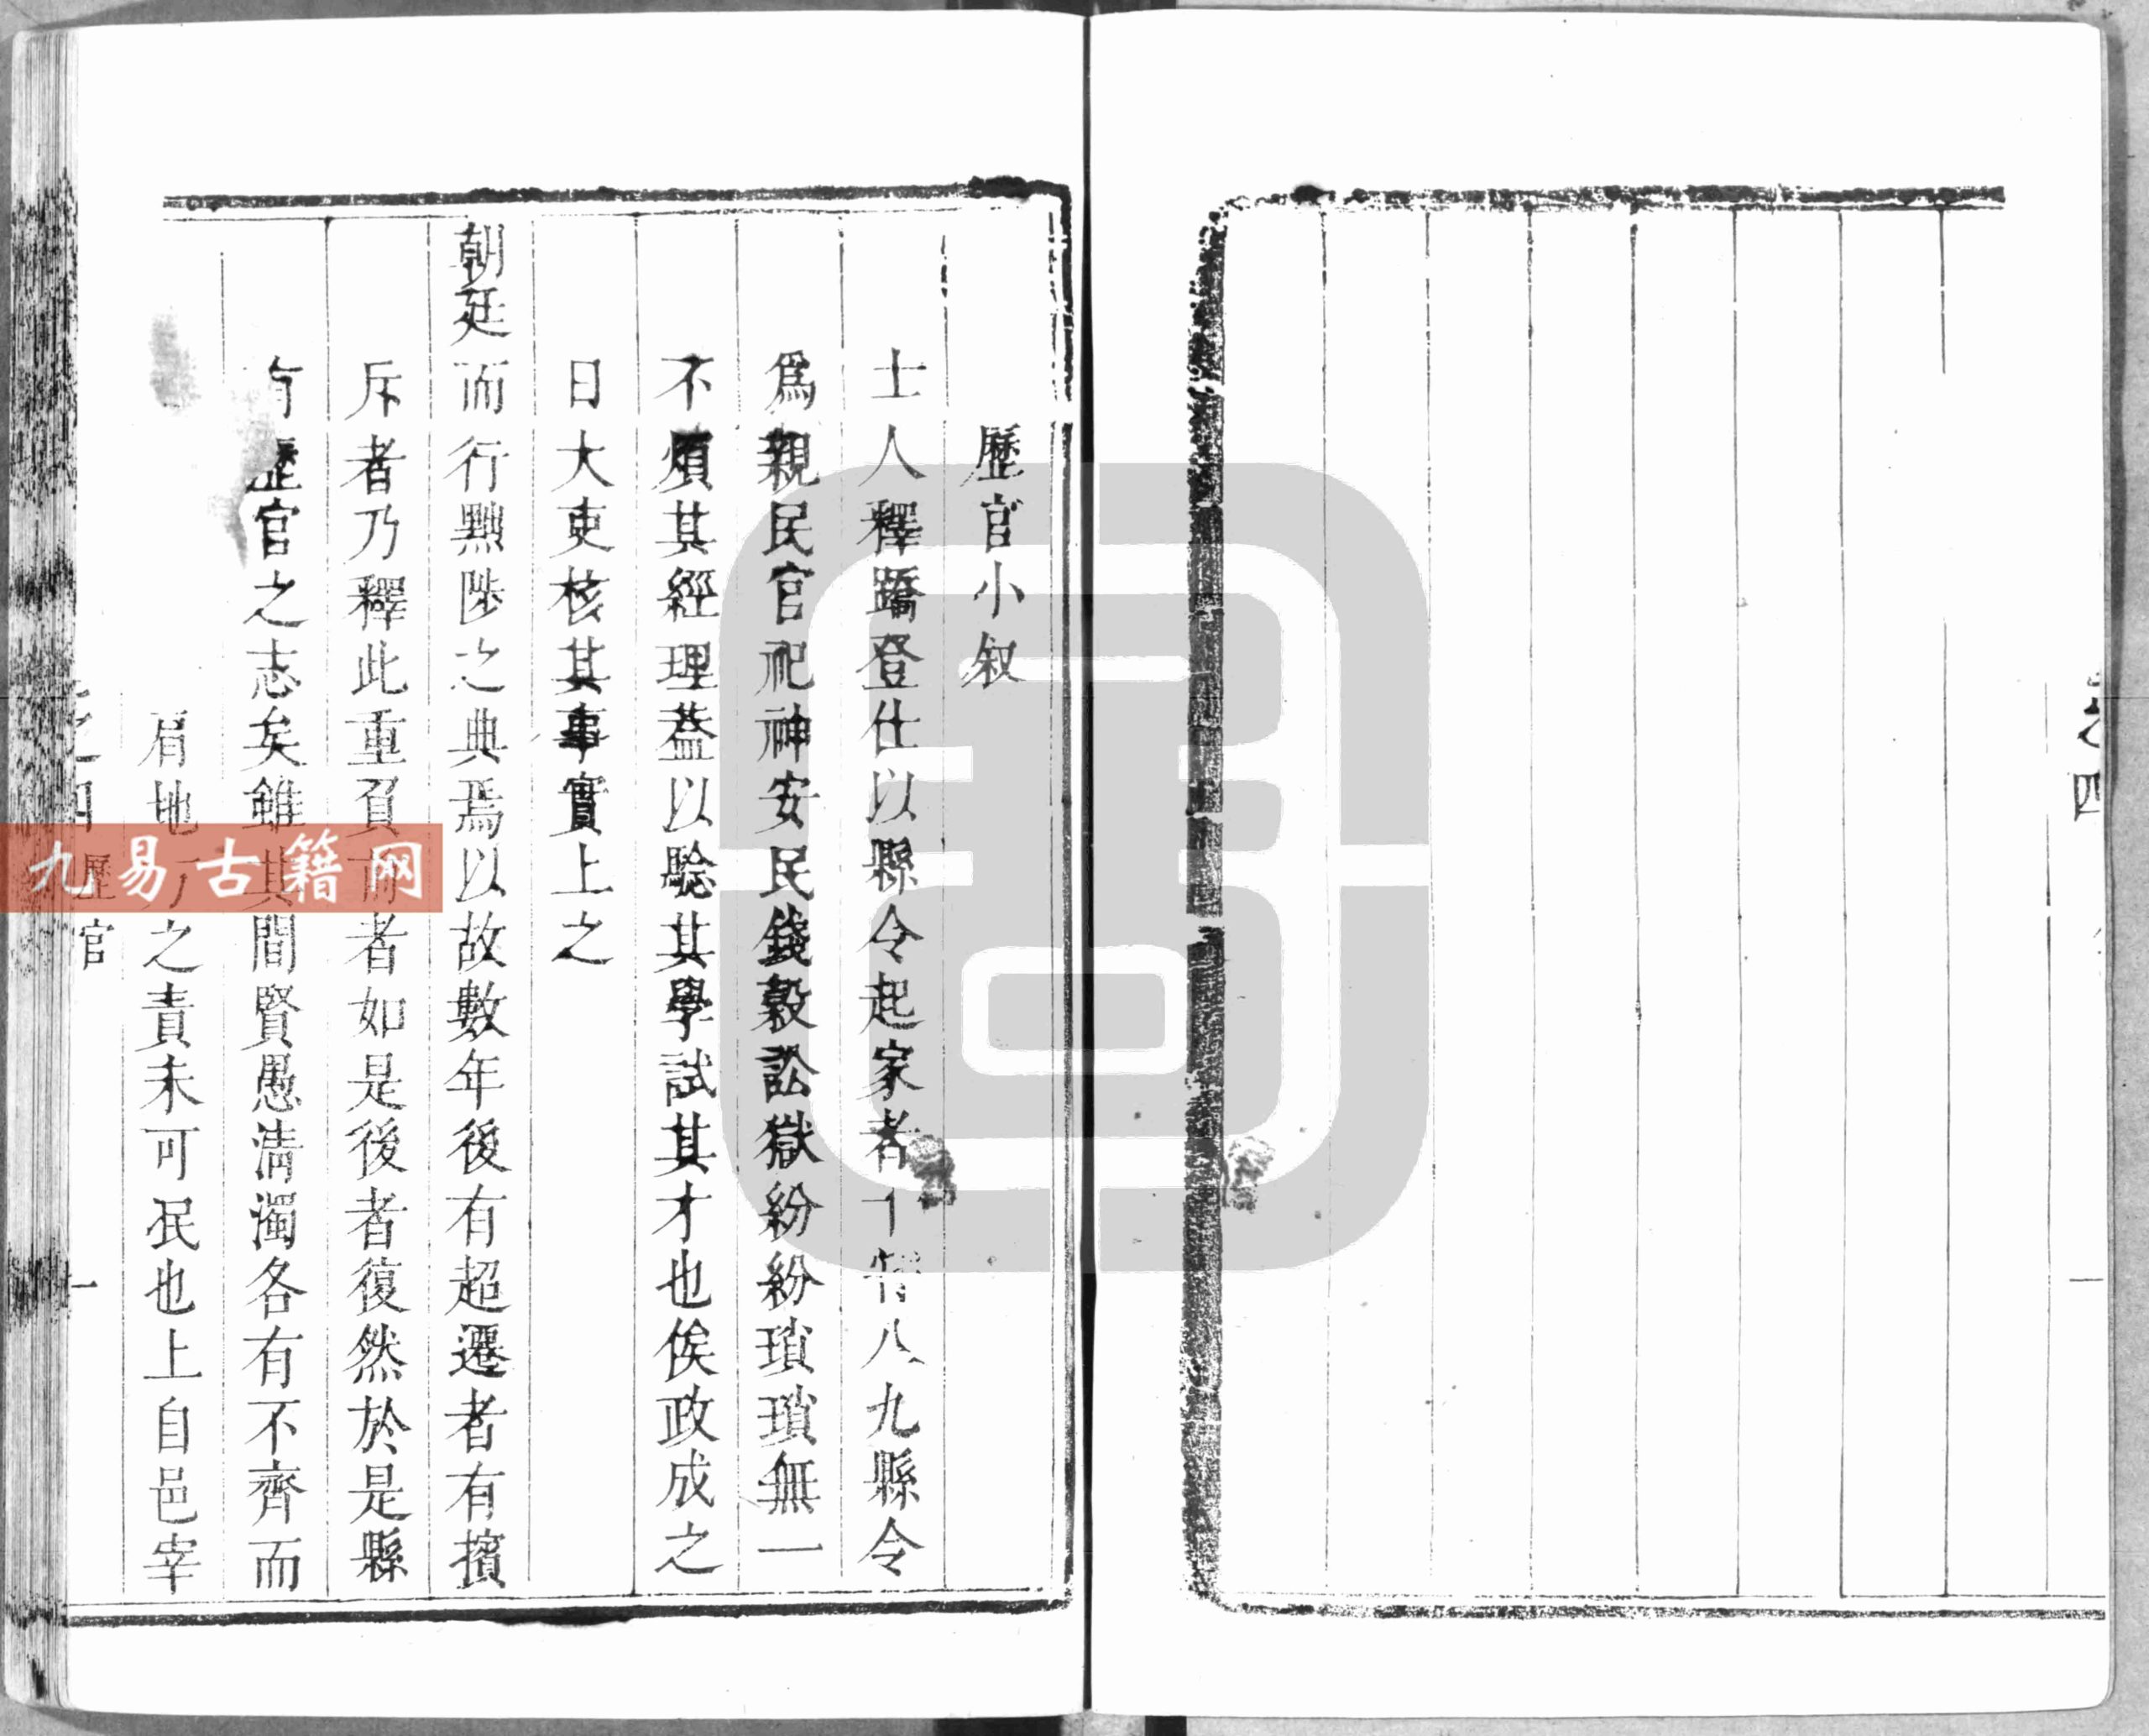 之四
歷官小叙
士人釋蹻登仕以縣令起家者十常八九縣令
爲親民官祀神安民錢穀訟獄紛紛瑣瑣無一
不煩其經理葢以驗其學試其才也俟政成之
日大吏核其事實上之
朝廷而行黜陟之典焉以故數年後有超遷者有擯
斥者乃釋此重負而者如是後者復然於是縣
有歷官之志矣雖其間賢愚淸濁各有不齊而
肩地方之責未可泯也上自邑宰
之四 歷官 一
九易古籍网